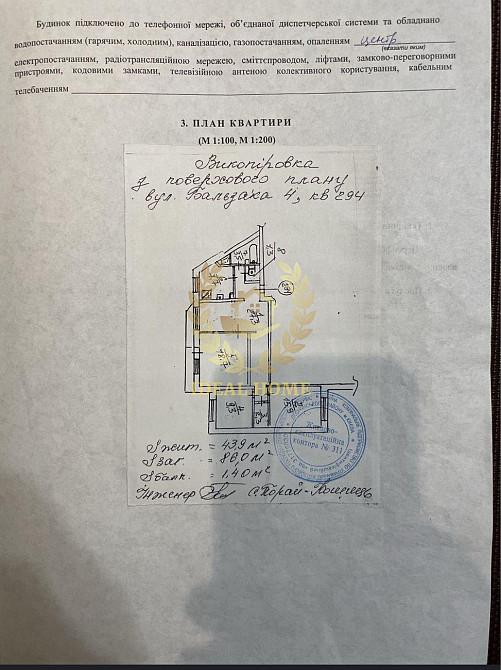 Будинок підключено до телефонної мережі, об'єднаної диспетчерської системи та обладнано
водопостачанням (гарячим, холодним), каналізацією, газопостачанням, опаленням центр
(вказати яким)
електропостачанням, радіотрансляційною мережею, сміттєпроводом, ліфтами, замково-переговорними
пристроями, кодовими замками, телевізійною антеною колективного користування, кабельним
телебаченням
3. ПЛАН КВАРТИРИ
(М 1:100, М 1:200)
Викопіровка
з поверхового плану
вул. Бальзака 4, кв 294
IDEAL HOME
S жит. = 43,9 м²
S заг. = 86,0 м²
S балк. = 1,40 м²
Інженер
Житлово-
експлуатаційна
контора № 311